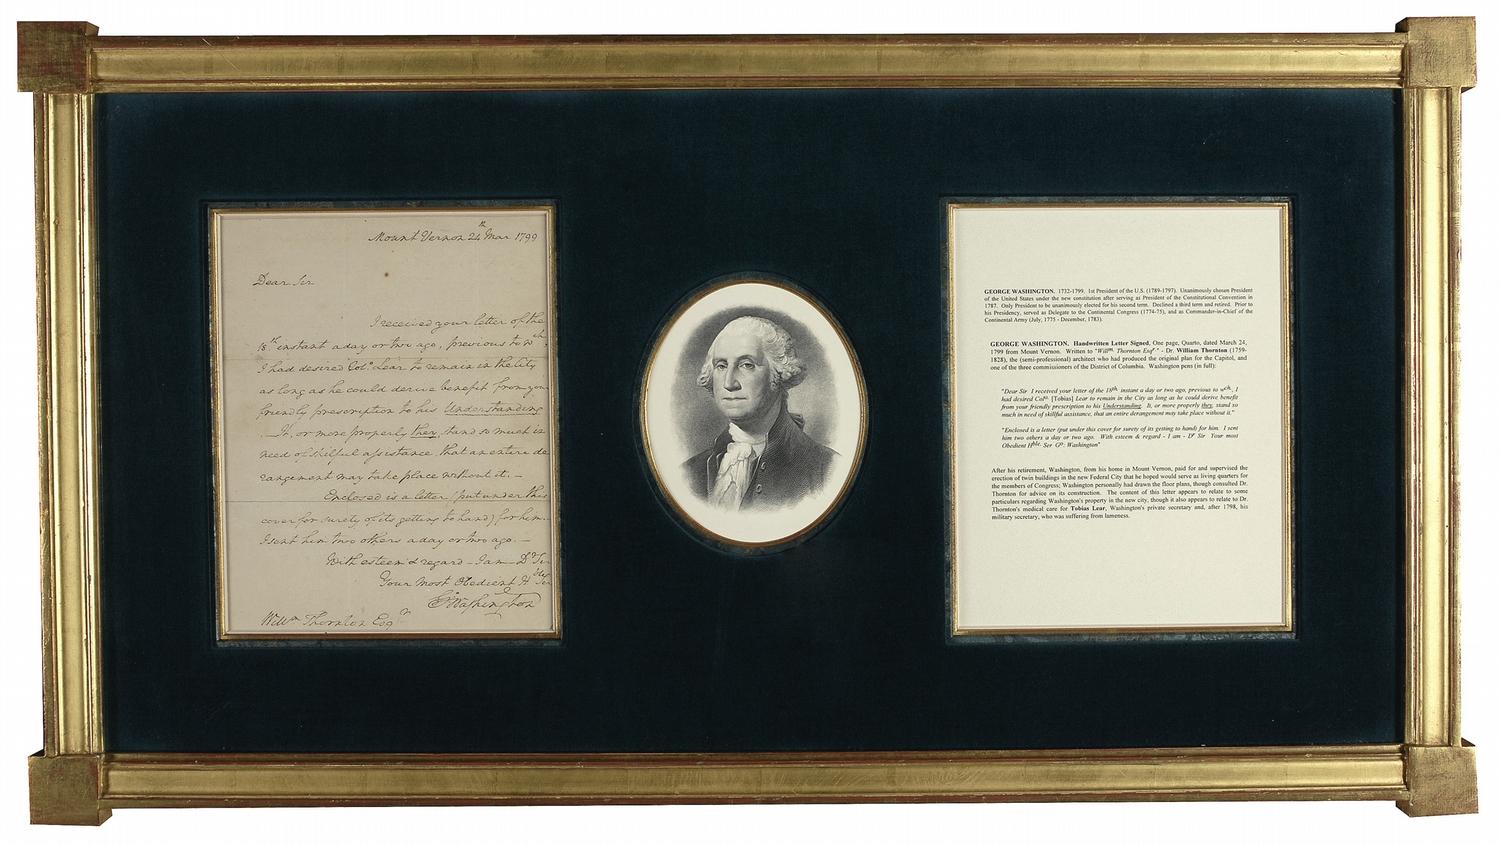 Mount Vernon 24th Mar 1799
Dear Sir
I received your letter of the
18th instant a day or two ago, previous to wch,
I had desired Colo. Lear to remain in the City
as long as he could derive benefit from your
friendly prescription to his Understanding
It, or more properly they, stand so much in
need of skilful assistance that an entire de
rangement may take place without it.—
Enclosed is a letter (put under this
cover for surety of its getting to hand) for him.
I sent him two others a day or two ago.—
With esteem & regard – I am – Dr Sir
Your Most Obedient Hble Ser
Go: Washington
Willm Thornton Esqr
GEORGE WASHINGTON. 1732-1799. 1st President of the U.S. (1789-1797). Unanimously chosen President
of the United States under the new constitution after serving as President of the Constitutional Convention in
1787. Only President to be unanimously elected for his second term. Declined a third term and retired. Prior to
his Presidency, served as Delegate to the Continental Congress (1774-75), and as Commander-in-Chief of the
Continental Army (July, 1775 - December, 1783).
GEORGE WASHINGTON. Handwritten Letter Signed, One page, Quarto, dated March 24,
1799 from Mount Vernon. Written to "Willm. Thornton Esqr" - Dr. William Thornton (1759-
1828), the (semi-professional) architect who had produced the original plan for the Capitol, and
one of the three commissioners of the District of Columbia. Washington pens (in full):
"Dear Sir I received your letter of the 18th instant a day or two ago, previous to wch, I
had desired Colo. [Tobias] Lear to remain in the City as long as he could derive benefit
from your friendly prescription to his Understanding. It, or more properly they, stand so
much in need of skillful assistance, that an entire derangement may take place without it."
"Enclosed is a letter (put under this cover for surety of its getting to hand) for him. I sent
him two others a day or two ago. With esteem & regard - I am - Dr Sir Your most
Obedient Hble. Ser Go: Washington"
After his retirement, Washington, from his home in Mount Vernon, paid for and supervised the
erection of twin buildings in the new Federal City that he hoped would serve as living quarters for
the members of Congress; Washington personally had drawn the floor plans, though consulted Dr.
Thornton for advice on its construction. The content of this letter appears to relate to some
particulars regarding Washington's property in the new city, though it also appears to relate to Dr.
Thornton's medical care for Tobias Lear, Washington's private secretary and, after 1798, his
military secretary, who was suffering from lameness.